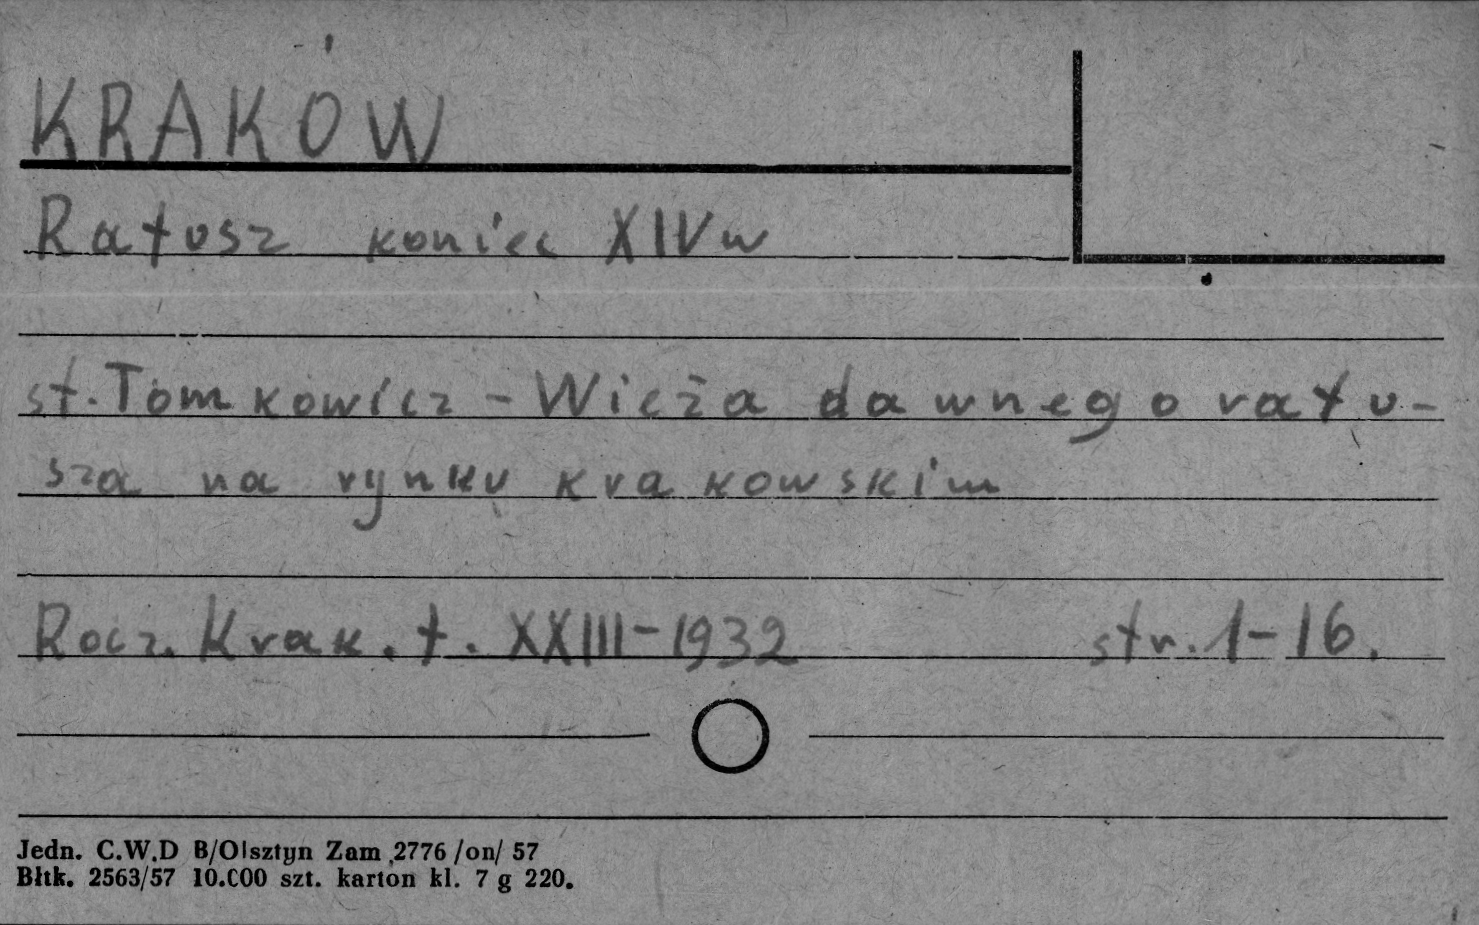 KRAKÓW
Ratusz koniec XIV w
st. Tomkowicz - Wieża dawnego ratu-
sza na rynku krakowskim
Rocz. Krak. t. XXIII-1932 str. 1-16.
Jedn. C.W.D B/Olsztyn Zam 2776 /on/ 57
Bltk. 2563/57 10.000 szt. karton kl. 7 g 220.